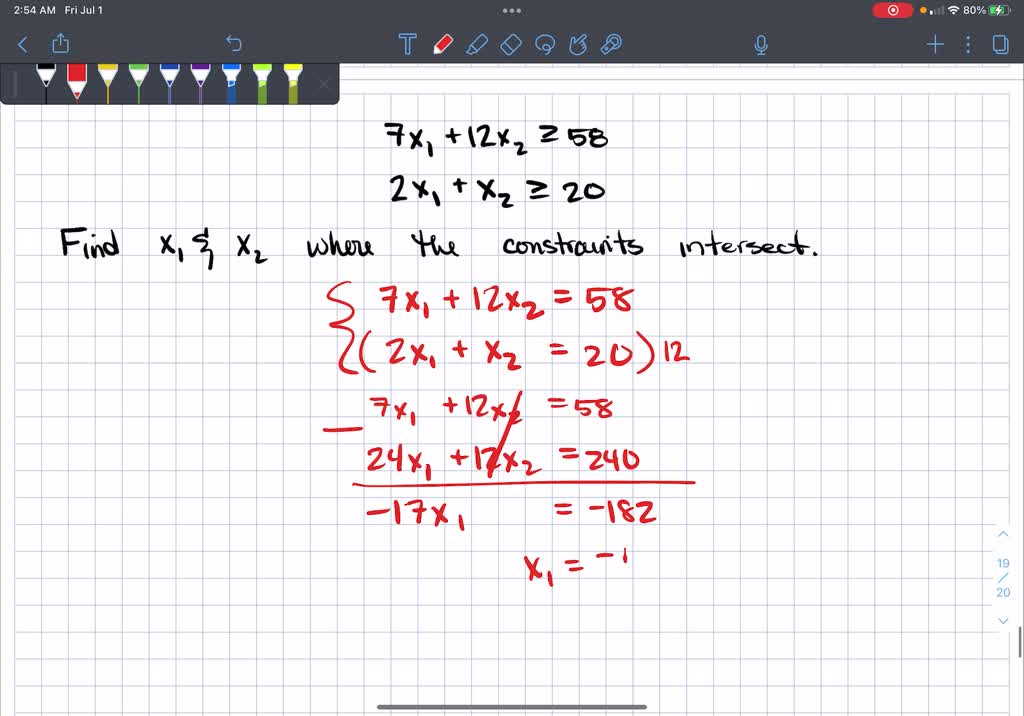 2:54 AM Fri Jul 1
80%
7x₁ + 12x₂ ≥ 58
2x₁ + x₂ ≥ 20
Find x₁ & x₂ where the constraints intersect.
7x₁ + 12x₂ = 58
(2x₁ + x₂ = 20) 12
7x₁ + 12x₂ = 58
— 24x₁ + 12x₂ = 240
-17x₁ = -182
x₁ = -1
19
/
20